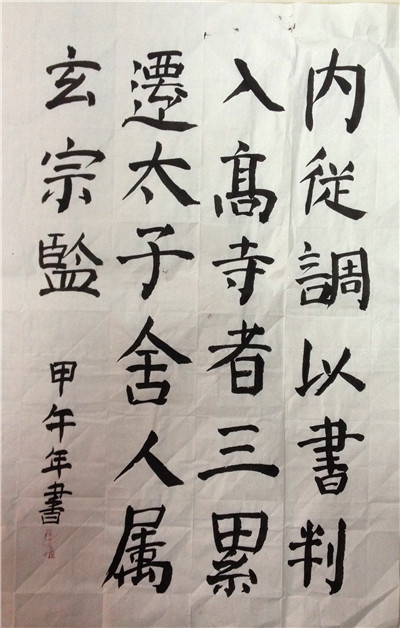 内從調以書判
入高寺者三累
遷太子舍人属
玄宗監
甲午年書